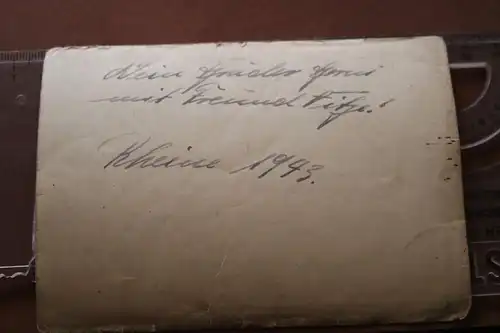 Mein Bruder Hans
mit Freund Fitze!
Rheine 1943.